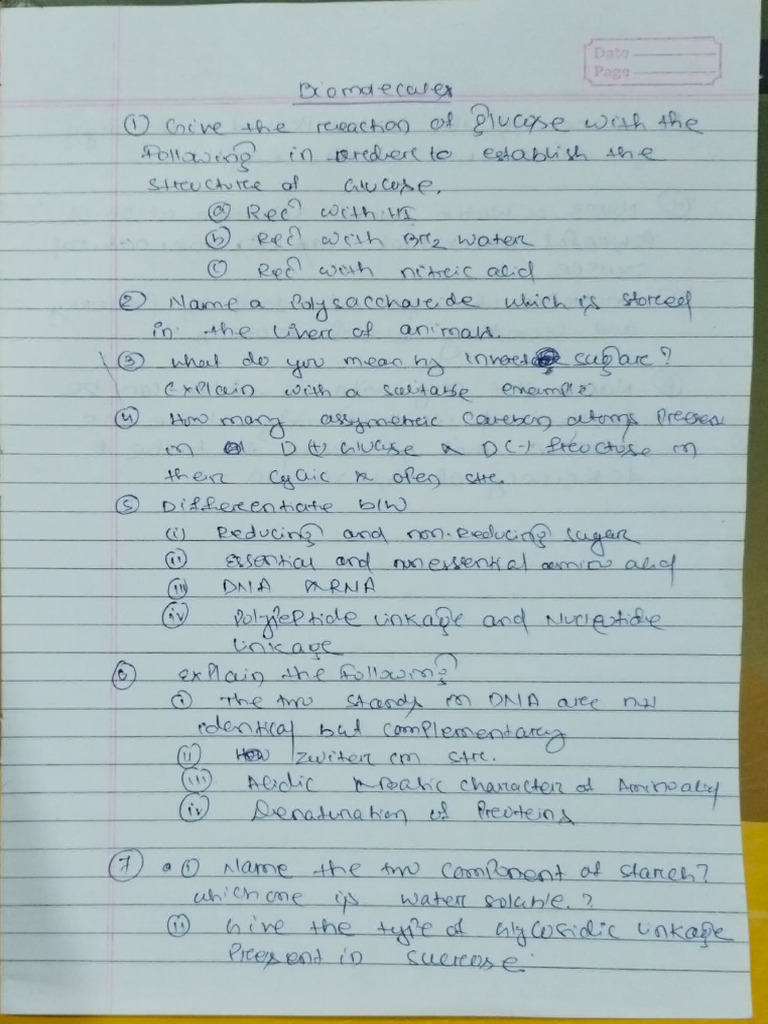 Date
Page
Biomolecules
① Give the reaction of glucose with the
following in order to establish the
structure of Glucose.
ⓐ Recⁿ with HI
ⓑ Recⁿ with Br₂ water
ⓒ Recⁿ with nitric acid
② Name a Polysaccharide which is stored
in the liver of animals.
③ what do you mean by invert sugar?
Explain with a suitable example
④ How many assymetric carbon atoms Present
in D(+) Glucose & D(-) fructose in
their cyclic & open str.
⑤ Differentiate b/w
(i) Reducing and non-Reducing sugar
(ii) essential and nonessential amino acid
(iii) DNA & RNA
(iv) Polypeptide linkage and Nucleotide
linkage
⑥ explain the following
(i) The two stands in DNA are not
identical but complementary
(ii) zwitter ion str.
(iii) Acidic & basic character of Amino acid
(iv) Denaturation of Proteins
⑦ (i) Name the two component of starch?
which one is water soluble.?
(ii) Give the type of Glycosidic linkage
Present in sucrose.